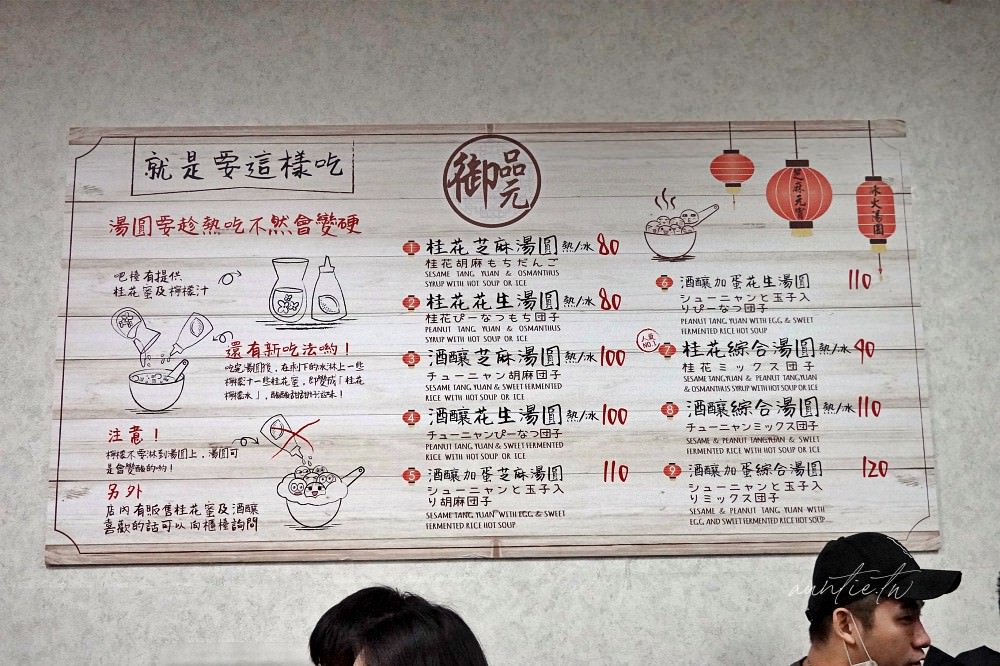 就是要這樣吃
湯圓要趁熱吃不然會變硬
吧檯有提供
桂花蜜及檸檬汁
還有新吃法喲！
吃完湯圓後，在剩下的冰淋上一些
檸檬汁一些桂花蜜，即變成「桂花
檸檬冰」，酸酸甜甜好滋味！
注意！
檸檬不要淋到湯圓上，湯圓可
是會變酸的喲！
另外
店內有販售桂花蜜及酒釀
喜歡的話可以向櫃檯詢問
御品元
1 桂花芝麻湯圓 熱/冰 80
桂花胡麻もちだんご
SESAME TANG YUAN & OSMANTHUS
SYRUP WITH HOT SOUP OR ICE
2 桂花花生湯圓 熱/冰 80
桂花ぴーなつもち団子
PEANUT TANG YUAN & OSMANTHUS
SYRUP WITH HOT SOUP OR ICE
3 酒釀芝麻湯圓 熱/冰 100
チューニャン胡麻団子
SESAME TANG YUAN & SWEET FERMENTED
RICE WITH HOT SOUP OR ICE
4 酒釀花生湯圓 熱/冰 100
チューニャンぴーなつ団子
PEANUT TANG YUAN & SWEET FERMENTED
RICE WITH HOT SOUP OR ICE
5 酒釀加蛋芝麻湯圓 110
シューニャンと玉子入
り胡麻団子
SESAME TANG YUAN WITH EGG & SWEET
FERMENTED RICE HOT SOUP
芝麻元宵
冰火湯圓
6 酒釀加蛋花生湯圓 110
シューニャンと玉子入
りぴーなつ団子
PEANUT TANG YUAN WITH EGG & SWEET
FERMENTED RICE HOT SOUP
人氣
NO.1
7 桂花綜合湯圓 熱/冰 90
桂花ミックス団子
SESAME TANGYUAN & PEANUT TANGYUAN
& OSMANTHUS SYRUP WITH HOT SOUP OR ICE
8 酒釀綜合湯圓 熱/冰 110
チューニャンミックス団子
SESAME & PEANUT TANGYUAN & SWEET
FERMENTED RICE WITH HOT SOUP OR ICE
9 酒釀加蛋綜合湯圓 120
シューニャンと玉子入
りミックス団子
SESAME & PEANUT TANG YUAN WITH
EGG AND SWEET FERMENTED RICE HOT SOUP
auntie.tw